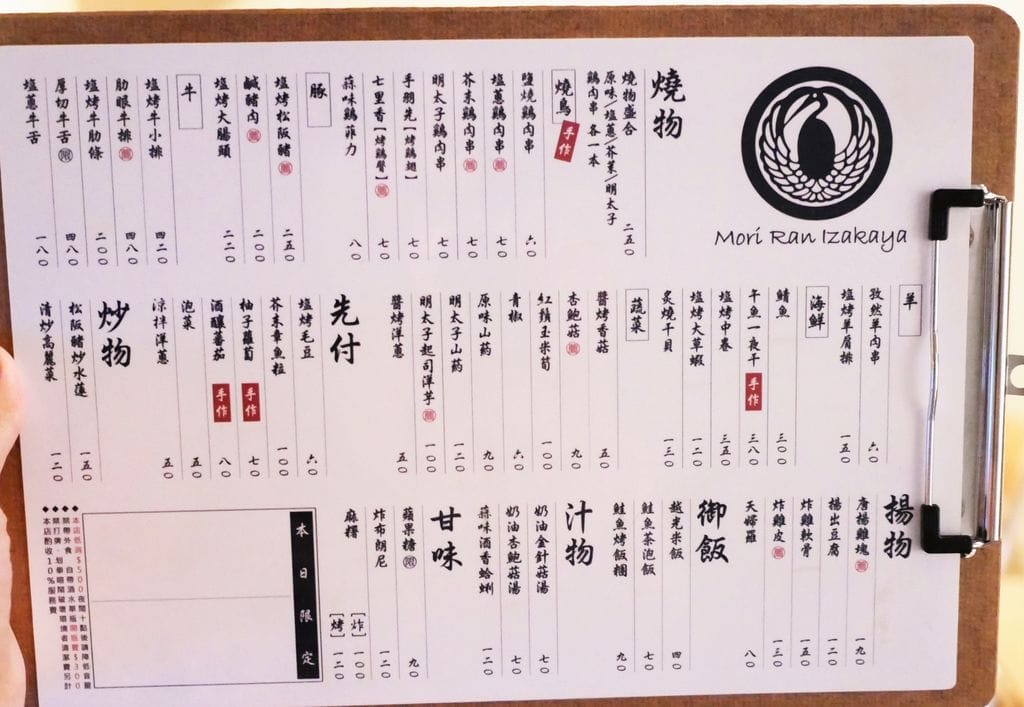 Mori Ran Izakaya
燒物
燒物盛合
原味/塩蔥/芥茉/明太子
鷄肉串 各一本 二五〇
燒鳥 手作
鹽燒鷄肉串 六〇
塩蔥鷄肉串 薦 七〇
芥末鷄肉串 薦 七〇
明太子鷄肉串 七〇
手羽先【烤鷄翅】 七〇
七里香【烤鷄臀】 薦 七〇
蒜味鷄菲力 八〇
豚
塩烤松阪豬 薦 二五〇
鹹豬肉 薦 二〇〇
塩烤大腸頭 二二〇
牛
塩烤牛小排 四二〇
肋眼牛排 薦 四八〇
塩烤牛肋條 二〇〇
厚切牛舌 限 四八〇
塩蔥牛舌 一八〇
羊
孜然羊肉串 六〇
塩烤羊肩排 一五〇
海鮮
鯖魚 三〇〇
午魚一夜干 手作 三八〇
塩烤中卷 三五〇
塩烤大草蝦 一二〇
炙燒干貝 一三〇
蔬菜
醬烤香菇 五〇
杏鮑菇 薦 九〇
紅鬚玉米筍 一〇〇
青椒 六〇
原味山葯 九〇
明太子山葯 一二〇
明太子起司洋芋 薦 一〇〇
醬烤洋蔥 五〇
先付
塩烤毛豆 六〇
芥末章魚粒 一〇〇
柚子蘿蔔 手作 七〇
酒釀蕃茄 手作 八〇
泡菜 五〇
涼拌洋蔥 五〇
炒物
松阪豬炒水蓮 一五〇
清炒高麗菜 一二〇
揚物
唐揚雞塊 薦 一九〇
揚出豆腐 一二〇
炸雞軟骨 一五〇
炸雞皮 薦 一三〇
天婦羅 八〇
御飯
越光米飯 四〇
鮭魚茶泡飯 七〇
鮭魚烤飯糰 九〇
汁物
奶油金針菇湯 七〇
奶油杏鮑菇湯 七〇
蒜味酒香蛤蜊 一二〇
甘味
蘋果糖 限 九〇
炸布朗尼 一二〇
麻糬 【炸】 一〇〇
【烤】 一二〇
本日限定
◆本店低消$500夜間十點後請降低音量
◆禁帶外食 自帶酒水單瓶開瓶費$300
◆禁打牌.划拳喧鬧破壞環境者清潔費另計
◆本店酌收10%服務費